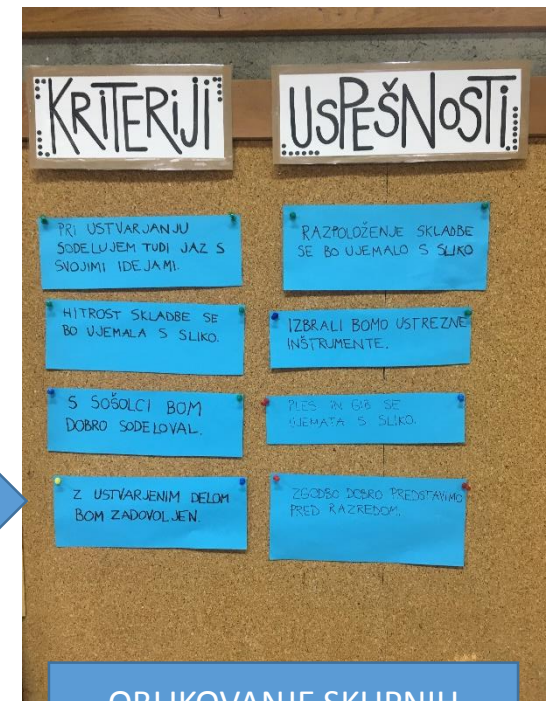 KRiTERiJI
USPEŠNOSTi
PRI USTVARJANJU
SODELUJEM TUDI JAZ S
SVOJIMI IDEJAMI.
HITROST SKLADBE SE
BO UJEMALA S SLIKO.
S SOŠOLCI BOM
DOBRO SODELOVAL.
Z USTVARJENIM DELOM
BOM ZADOVOLJEN.
RAZPOLOŽENJE SKLADBE
SE BO UJEMALO S SLIKO
IZBRALI BOMO USTREZNE
INŠTRUMENTE.
PLES IN GIB SE
UJEMATA S SLIKO.
ZGODBO DOBRO PREDSTAVIMO
PRED RAZREDOM.
OBLIKOVANJE SKUPNIH